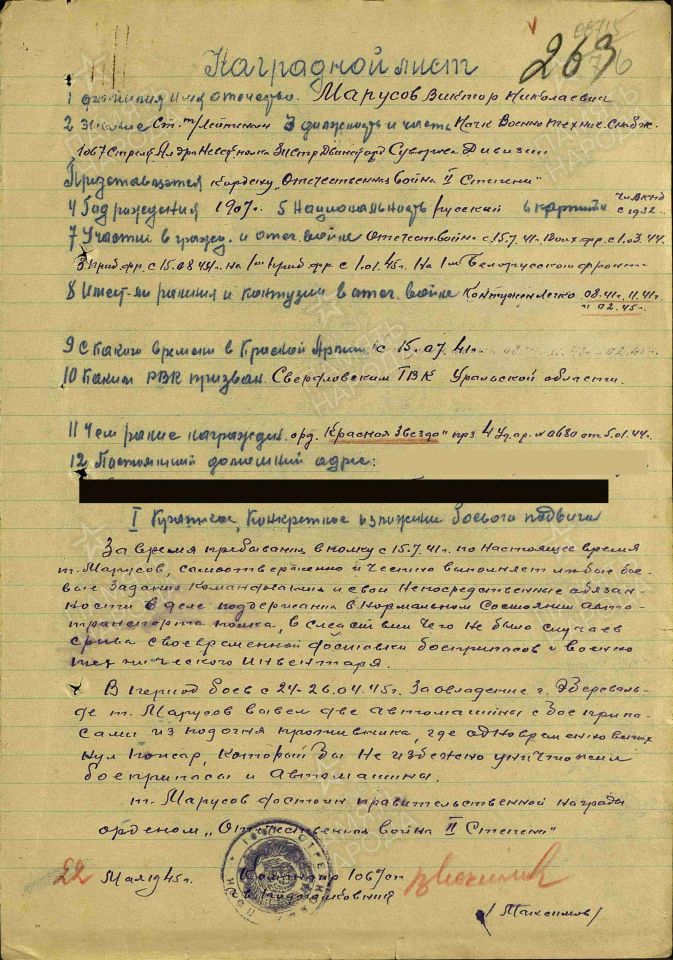 263
Наградной лист
1 Фамилия имя отечество. Марусов Виктор Николаевич
2 Звание Ст. т/Лейтенант 3 должность и часть Начк Военно Технич. Снабж.
1067 Стрелк. Дивизии
Представляется к ордену „Отечественная война II Степени"
4 Год рождения 1907г. 5 Национальность русский 6 партийн Чл ВКПб с 1932
7 Участие в гражд. и отеч. войне Отечест. война с 15.7.41г. фр. с 1.03.44.
Приб. фр. на 1ый Приб. фр. с 1.01.45г. На 1ый Белорусском фронте
8 Имеет-ли ранения и контузии в отеч. войне Контужен Легко 08.41г. 11.41г.
" 02.45г.
9 С какого времени в Красной Армии: с 15.07.41г.
10 Каким РВК призван. Свердловским ГВК Уральской области.
11 Чем ранее награжден. орд. „Красная Звезда" прз 4 Уд. ар. № 0680 от 5.01.44г.
12 Постоянный домашний адрес:
I Краткое, Конкретное изложение боевого подвига
За время пребывания в полку с 15.7.41г. по настоящее время
т. Марусов, самоотверженно и честно выполняет любые бое-
вые задания командования и свои непосредственные обязан-
ности в деле поддержания в нормальном состоянии авто-
транспорта полка, в следствии чего не было случаев
срыва своевременной доставки боеприпасов и военно
технического инвентаря.
В период боев с 24-26.04.45г. За овладение г. Эберсваль-
де т. Марусов вывел две автомашины с боеприпа-
сами из подогня противника, где одновременно возник
нул пожар, который бы не избежно уничтожил
боеприпасы и автомашины.
т. Марусов достоин правительственной награды
орденом „Отечественная война II Степени"
22 Мая 1945г. Командир 1067сп
Подполковник
/Максимов/